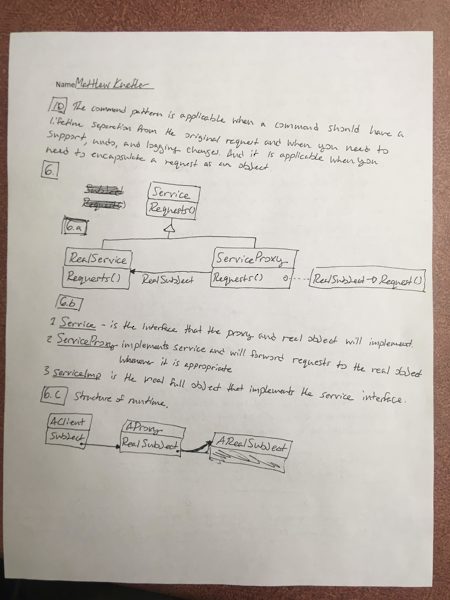 Name Matthew
10 The command pattern is applicable when a command should have a
Lifetime separation from the original request and when you need to
support, undo, and logging changes. And it is applicable when you
need to encapsulate a request as an object
6.
Service
Subject
Requests()
Requests()
6.a
RealService
ServiceProxy
Requests()
RealSubject
Requests()
RealSubject → Request()
6.b
1 Service - is the interface that the proxy and real object will implement.
2 ServiceProxy implements service and will forward requests to the real object
whenever it is appropriate
3 ServiceImp is the real full object that implements the service interface.
6.C Structure at runtime.
AClient
Subject
AProxy
RealSubject
ARealSubject